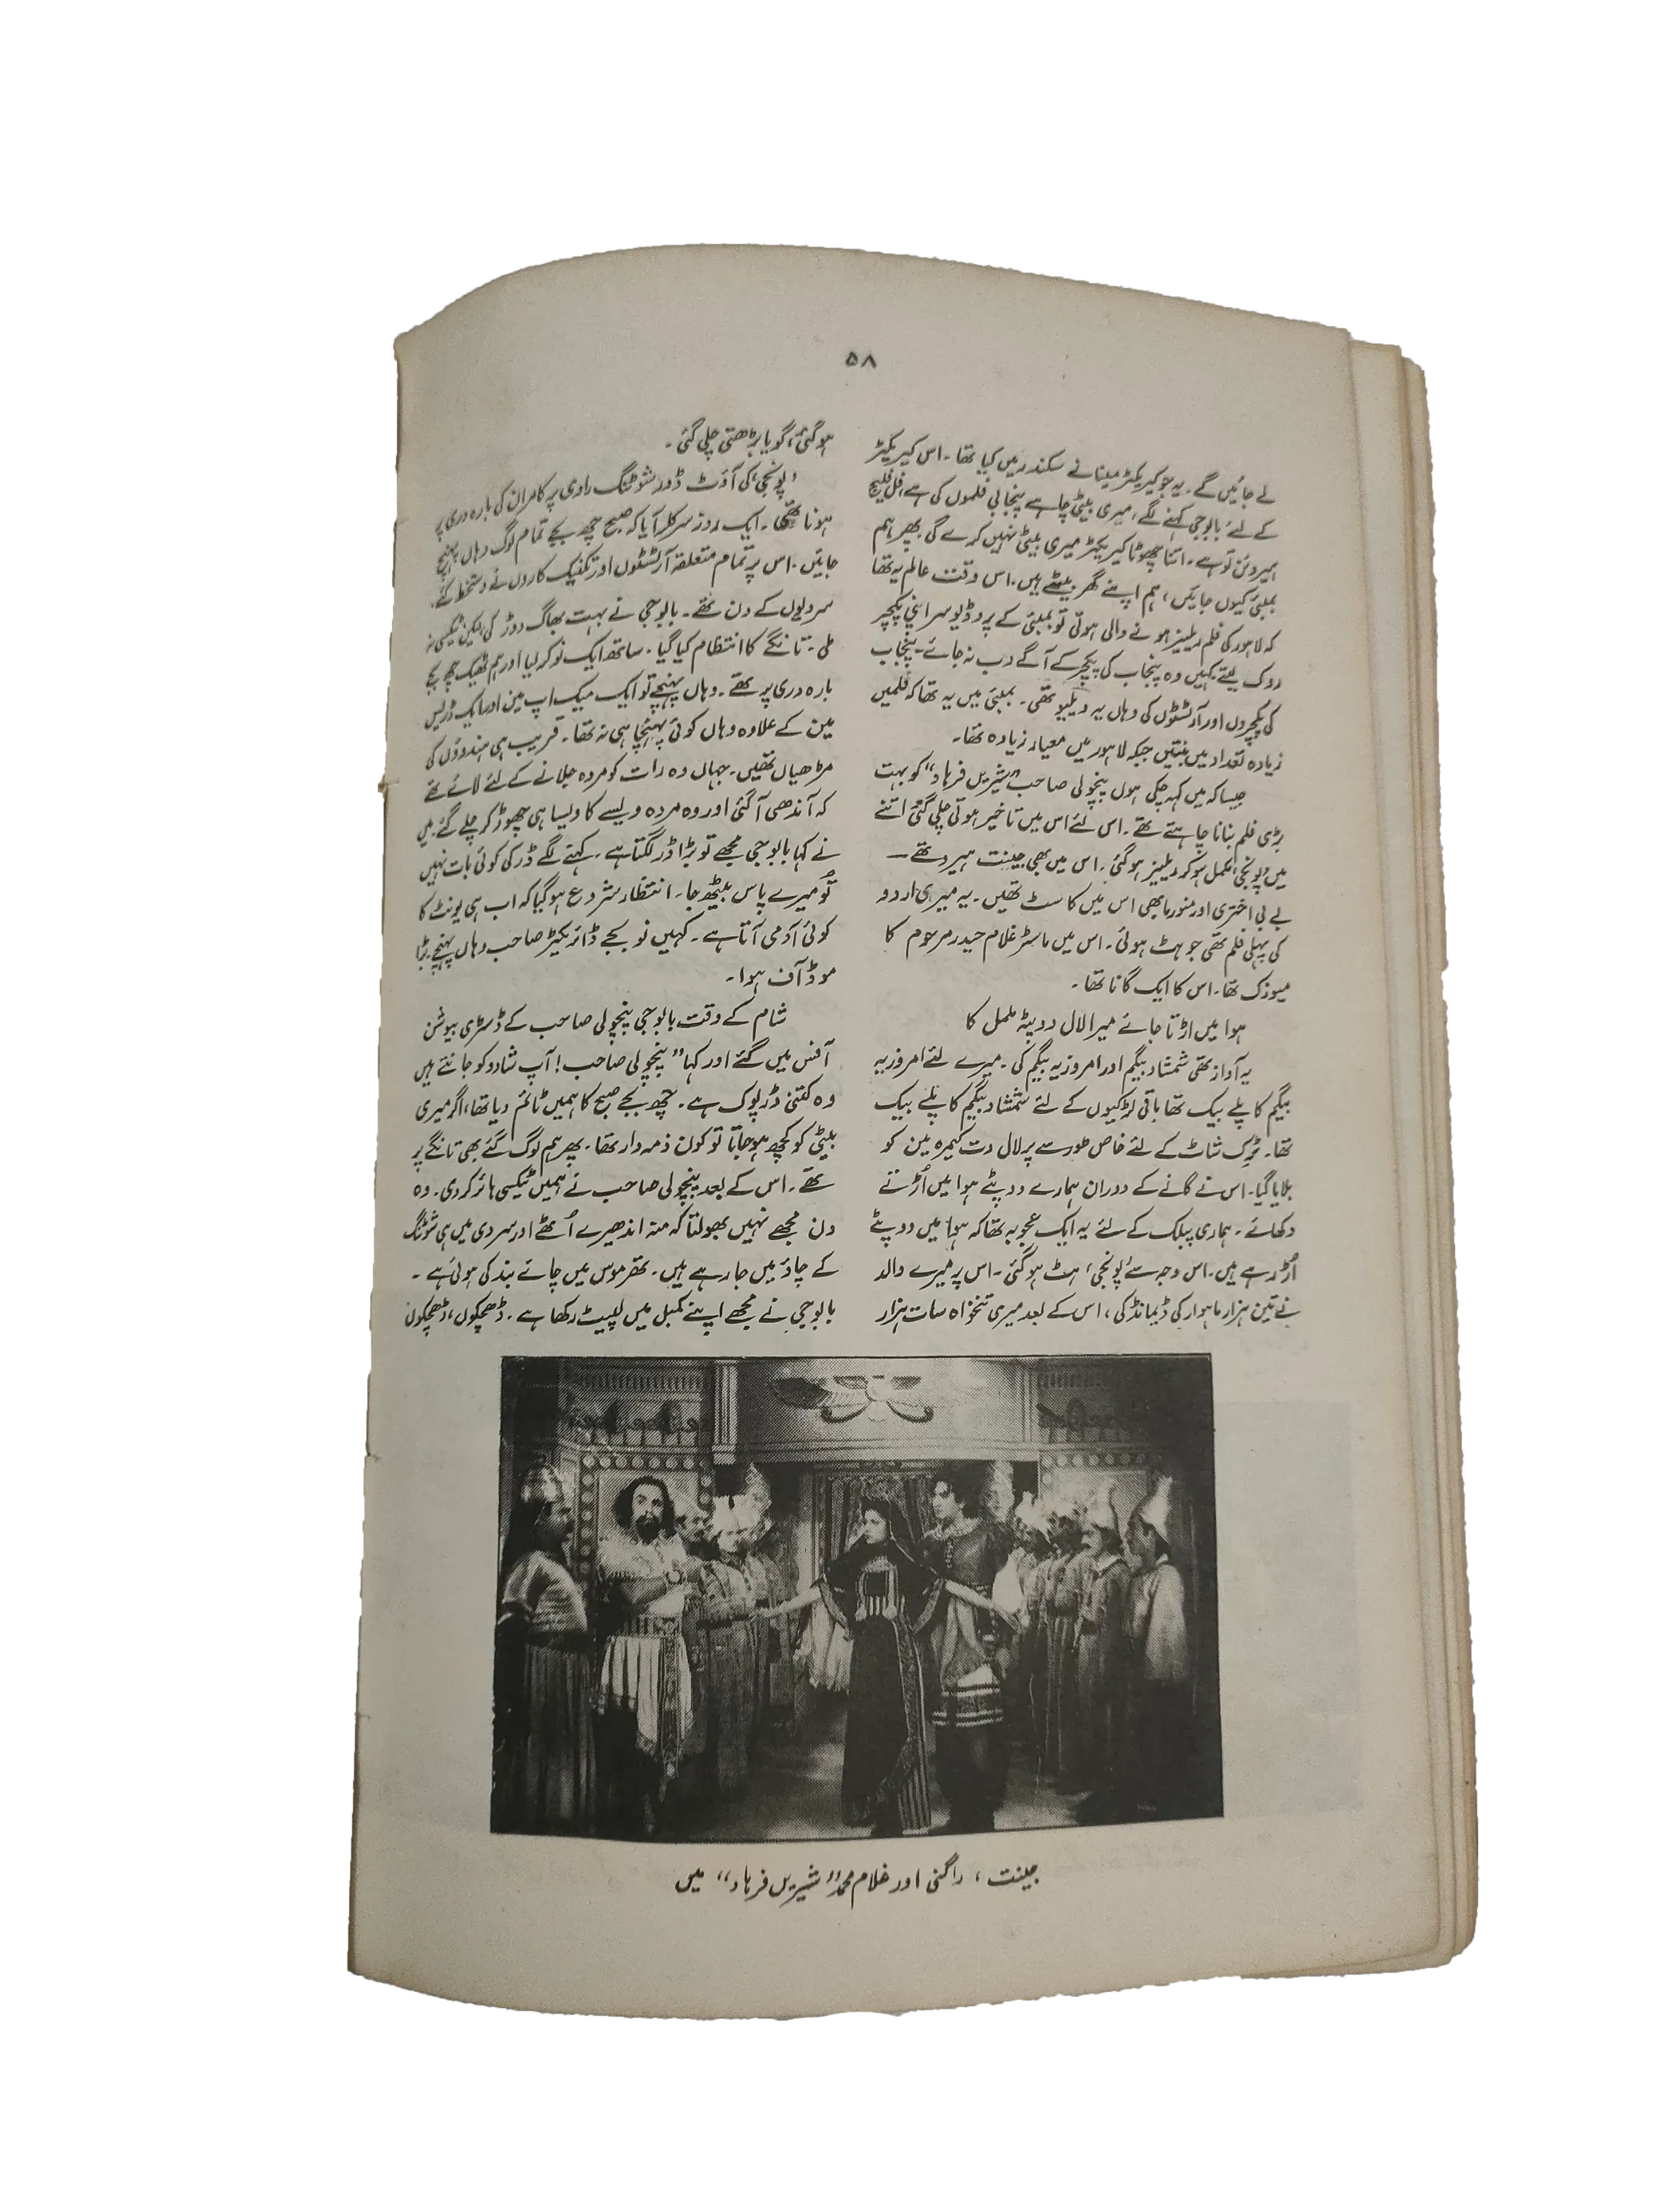 ۵۸
لے جائیں گے۔ یہ جو کیریکٹر مینا نے سکندر میں کیا تھا۔ اس کیریکٹر
کے لئے بابو جی کہنے لگے، میری بیٹی چاہے پنجابی فلموں کی ہے، فل فلیج
ہیروئن تو ہے۔ اتنا چھوٹا کیریکٹر میری بیٹی نہیں کرے گی۔ پھر ہم
بمبئی کیوں جائیں، ہم اپنے گھر بیٹھے ہیں۔ اس وقت عالم یہ تھا
کہ لاہور کی فلم ریلیز ہونے والی ہوتی تو بمبئی کے پروڈیوسر اپنی پکچر
روک لیتے کہیں وہ پنجاب کی پکچر کے آگے دب نہ جائے۔ پنجاب
کی پکچروں اور آرٹسٹوں کی وہاں یہ ویلیو تھی۔ بمبئی میں یہ تھا کہ فلمیں
زیادہ تعداد میں بنتیں جبکہ لاہور میں معیار زیادہ تھا۔
جیسا کہ میں کہہ چکی ہوں پنچولی صاحب ”شیریں فرہاد“ کو بہت
بڑی فلم بنانا چاہتے تھے۔ اس لئے اس میں تاخیر ہوتی چلی گئی اتنے
میں ’پونجی‘ مکمل ہو کر ریلیز ہو گئی۔ اس میں بھی جینت ہیرو تھے —
بے بی اختری اور منورما بھی اس میں کاسٹ تھیں۔ یہ میری اردو
کی پہلی فلم تھی جو ہٹ ہوئی۔ اس میں ماسٹر غلام حیدر مرحوم کا
میوزک تھا۔ اس کا ایک گانا تھا۔
ہوا میں اڑتا جائے میرا لال دوپٹہ ململ کا
یہ آواز تھی شمشاد بیگم اور امروزیہ بیگم کی۔ میرے لئے امروزیہ
بیگم کا پلے بیک تھا باقی لڑکیوں کے لئے شمشاد بیگم کا پلے بیک
تھا۔ ٹرک شاٹ کے لئے خاص طور سے پر لال دت کیمرہ مین کو
بلایا گیا۔ اس نے گانے کے دوران ہمارے دوپٹے ہوا میں اُڑتے
دکھائے۔ ہماری پبلک کے لئے یہ ایک عجوبہ تھا کہ ہوا میں دوپٹے
اُڑ رہے ہیں۔ اس وجہ سے ’پونجی‘ ہٹ ہو گئی۔ اس پر میرے والد
نے تین ہزار ماہوار کی ڈیمانڈ کی، اس کے بعد میری تنخواہ سات ہزار
ہو گئی، گویا بڑھتی چلی گئی۔
’پونجی‘ کی آؤٹ ڈور شوٹنگ راوی پر کامران کی بارہ دری پر
ہونا تھی۔ ایک روز سرکلر آیا کہ صبح چھ بجے تمام لوگ وہاں پہنچ
جائیں۔ اس پر تمام متعلقہ آرٹسٹوں اور تکنیک کاروں نے دستخط کئے۔
سردیوں کے دن تھے۔ بابو جی نے بہت بھاگ دوڑ کی لیکن ٹیکسی نہ
ملی۔ تانگے کا انتظام کیا گیا۔ ساتھ ایک نوکر لیا اور ہم ٹھیک چھ بجے
بارہ دری پر تھے۔ وہاں پہنچے تو ایک میک اپ مین اور ایک ڈریس
مین کے علاوہ وہاں کوئی پہنچا ہی نہ تھا۔ قریب ہی ہندوؤں کی
مڑھیاں تھیں۔ جہاں وہ رات کو مردہ جلانے کے لئے لائے تھے
کہ آندھی آ گئی اور وہ مردہ ویسے کا ویسا ہی چھوڑ کر چلے گئے۔ میں
نے کہا بابو جی مجھے تو بڑا ڈر لگتا ہے۔ کہنے لگے ڈر کی کوئی بات نہیں
تُو میرے پاس بیٹھ جا۔ انتظار شروع ہو گیا کہ اب ہی یونٹ کا
کوئی آدمی آتا ہے۔ کہیں نو بجے ڈائریکٹر صاحب وہاں پہنچے۔ بڑا
موڈ آف ہوا۔
شام کے وقت بابو جی پنچولی صاحب کے ڈسٹری بیوشن
آفس میں گئے اور کہا ”پنچولی صاحب! آپ شادو کو جانتے ہیں
وہ کتنی ڈرپوک ہے۔ چھ بجے صبح کا ہمیں ٹائم دیا تھا، اگر میری
بیٹی کو کچھ ہو جاتا تو کون ذمہ دار تھا۔ پھر ہم لوگ گئے بھی تانگے پر
تھے۔ اس کے بعد پنچولی صاحب نے ہمیں ٹیکسی ہائر کر دی۔ وہ
دن مجھے نہیں بھولتا کہ منہ اندھیرے اُٹھے اور سردی میں ہی شوٹنگ
کے چاؤ میں جا رہے ہیں۔ تھرموس میں چائے بند کی ہوئی ہے۔
بابو جی نے مجھے اپنے کمبل میں لپیٹ رکھا ہے۔ ڈھچکوں، ڈھچکوں
جینت، راگنی اور غلام محمد ”شیریں فرہاد“ میں